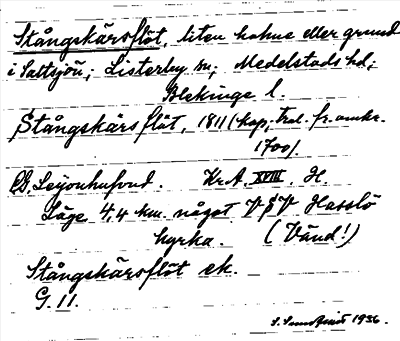 Stångskärsflöt, liten holme eller grund
i Saltsjön; Listerby sn; Medelstads hd;
Blekinge l.
Stångskärs flöt, 1811 (kop; tral. fr. omkr.
1700).
G. Lejonhufvud. Kr.A. XVIII. H
Läge 4,4 km. något V & V Hasslö
kyrka. (Vänd!)
Stångskärsflöt ek.
G. 11.
1936.